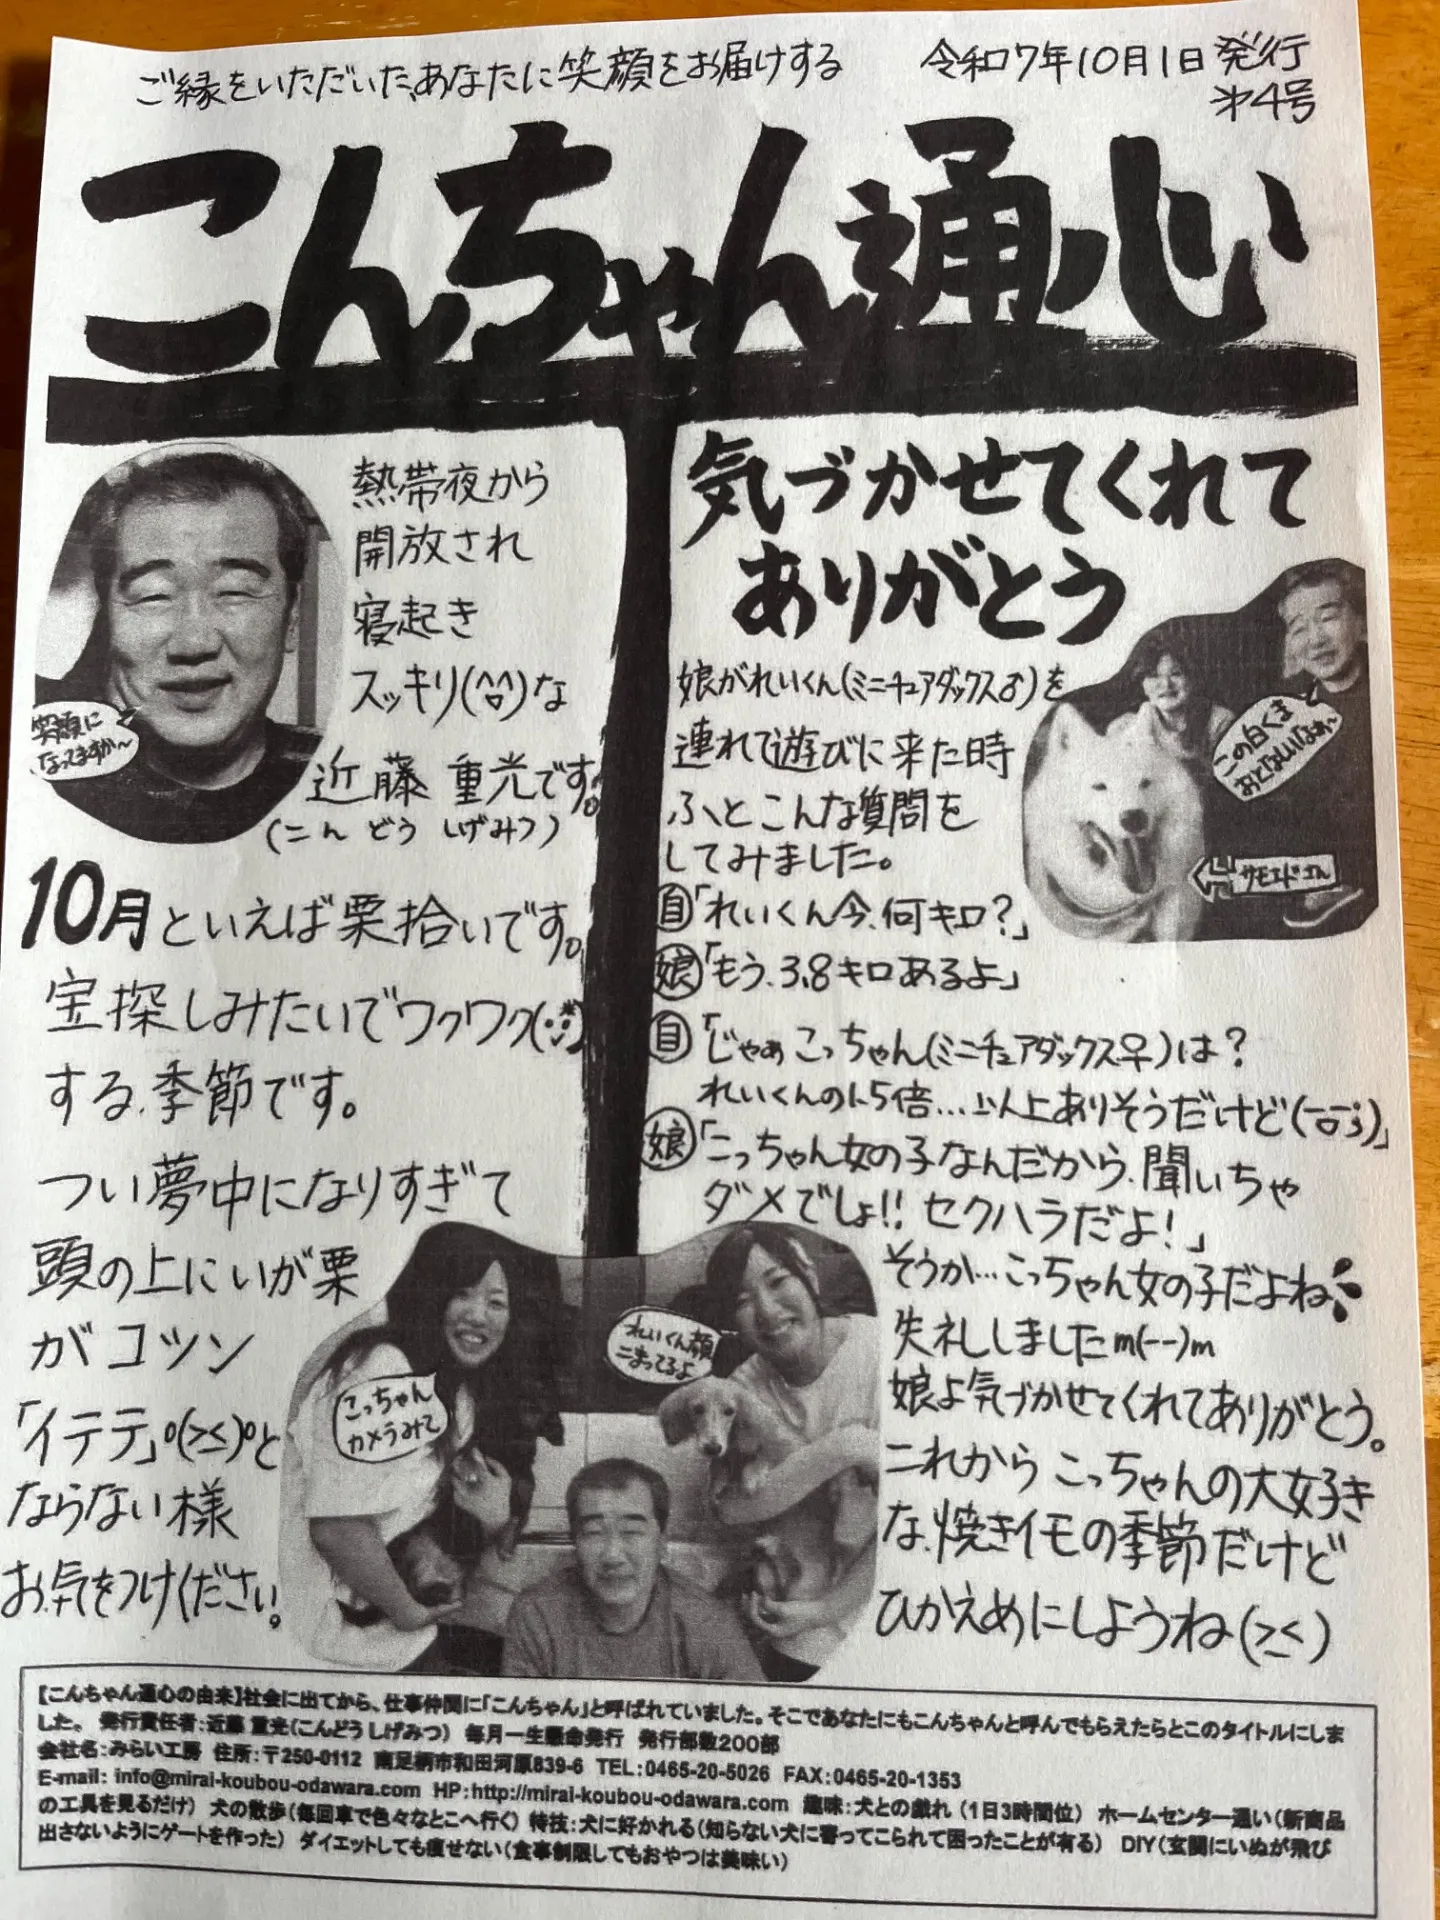 ご縁をいただいた、あなたに笑顔をお届けする
令和7年10月1日発行
第4号
こんちゃん通心
熱帯夜から
開放され
寝起き
スッキリ(^0^)な
近藤 重光です。
(こん どう しげみつ)
笑顔に
なってますか〜
10月といえば栗拾いです。
宝探しみたいでワクワク
する、季節です。
つい夢中になりすぎて
頭の上にいが栗
がコツン
「イテテ」º(>_<)ºと
ならない様
お気をつけください。
気づかせてくれて
ありがとう
娘がれいくん(ミニチュアダックス♂)を
連れて遊びに来た時
ふとこんな質問を
してみました。
自「れいくん今、何キロ?」
娘「もう、3.8キロあるよ」
自「じゃぁこっちゃん(ミニチュアダックス♀)は?
れいくんの1.5倍…以上ありそうだけど(-□-;)」
娘「こっちゃん女の子なんだから、聞いちゃ
ダメでしょ!! セクハラだよ!」
そうか…こっちゃん女の子だよね
失礼しましたm(--)m
娘よ気づかせてくれてありがとう。
これからこっちゃんの大好き
な、焼きイモの季節だけど
ひかえめにしようね(>_<)
この白くま
おとなしいなぁ〜
サモエドさん
こっちゃん
カメラみて
れいくん顔
こまってるよ
【こんちゃん通心の由来】社会に出てから、仕事仲間に「こんちゃん」と呼ばれていました。そこであなたにもこんちゃんと呼んでもらえたらとこのタイトルにしま
した。 発行責任者:近藤 重光(こんどう しげみつ) 毎月一生懸命発行 発行部数200部
会社名:みらい工房 住所:〒250-0112 南足柄市和田河原839-6 TEL:0465-20-5026 FAX:0465-20-1353
E-mail: info@mirai-koubou-odawara.com HP:http://mirai-koubou-odawara.com 趣味:犬との戯れ(1日3時間位) ホームセンター通い(新商品
の工具を見るだけ) 犬の散歩(毎回車で色々なとこへ行く) 特技:犬に好かれる(知らない犬に寄ってこられて困ったことが有る) DIY(玄関にいぬが飛び
出さないようにゲートを作った) ダイエットしても痩せない(食事制限してもおやつは美味い)